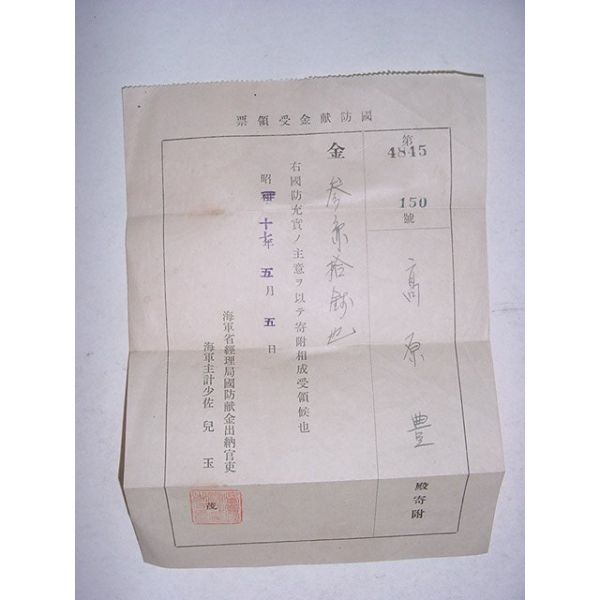 國防献金受領票
第
4845
150
號
高原豊
殿寄附
金
拾銭也
右國防充實ノ主意ヲ以テ寄附相成受領候也
昭和十七年五月五日
海軍省經理局國防献金出納官吏
海軍主計少佐 兒玉
茂